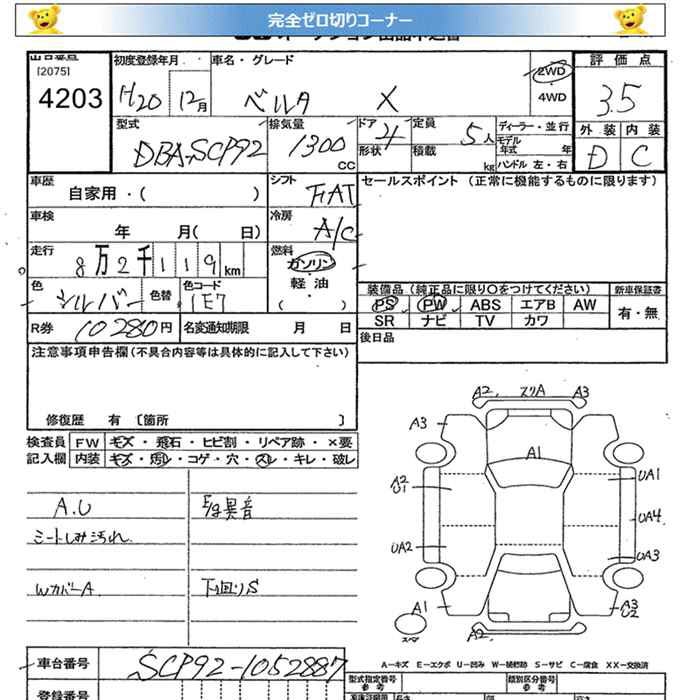 完全ゼロ切りコーナー
出品番号
[2075]
4203
初度登録年月
H20 12月
車名・グレード
ベルタ X
2WD
4WD
評価点
3.5
型式
DBA-SCP92
排気量
1300 CC
ドア 4
形状
定員 5人
積載 kg
ディーラー・並行
モデル年式 年
ハンドル 左・右
外装 内装
D C
車歴
自家用・( )
シフト
FAT
セールスポイント (正常に機能するものに限ります)
車検
年 月( 日)
冷房
A/C
走行
8万2千119km
燃料
ガソリン
軽油
( )
色
シルバー
色替
色コード
1E7
装備品 (純正品に限り○をつけてください)
新車保証書
PS PW ABS エアB AW
有・無
SR ナビ TV カワ
R券 10280円
名変通知期限 月 日
後日品
注意事項申告欄(不具合内容等は具体的に記入して下さい)
修復歴 有 [箇所 ]
検査員 FW キズ・飛石・ヒビ割・リペア跡・×要
記入欄 内装 キズ・汚れ・コゲ・穴・スレ・キレ・破レ
A.U
シートしみ汚れ
WカバーA
E/g異音
下回りS
A2. スリA A3
A3
A1
A2
U1
UA1
UA4
UA2
UA3
A1
A3
U2
スペア
A2
A-キズ E-エクボ U-凹み W-補修跡 S-サビ C-腐食 XX-交換済
車台番号
SCP92-1052887
登録番号
型式指定番号
参考
類別区分番号
参考
長さ